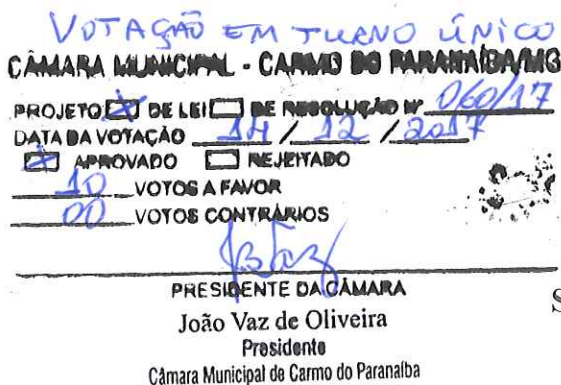 VOTAÇÃO EM TURNO ÚNICO
CÂMARA MUNICIPAL - CARMO DO PARANAÍBA/MG
PROJETO ☒ DE LEI ☐ DE RESOLUÇÃO Nº 060/17
DATA DA VOTAÇÃO 14 / 12 / 2017
☒ APROVADO ☐ REJEITADO
10 VOTOS A FAVOR
00 VOTOS CONTRÁRIOS
PRESIDENTE DA CÂMARA
João Vaz de Oliveira
Presidente
Câmara Municipal de Carmo do Paranaíba
S